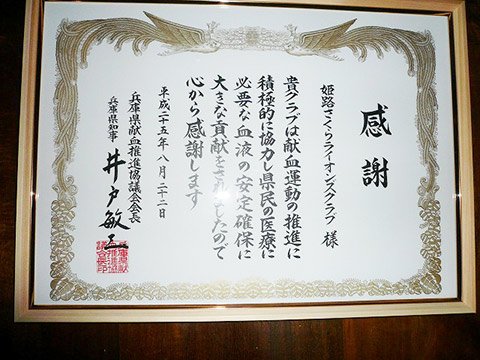 感謝
姫路さくらライオンズクラブ 様
貴クラブは献血運動の推進に
積極的に協力し県民の医療に
必要な血液の安定確保に
大きな貢献をされましたので
心から感謝します
平成二十五年八月二十二日
兵庫県献血推進協議会会長
兵庫県知事 井戸敏三